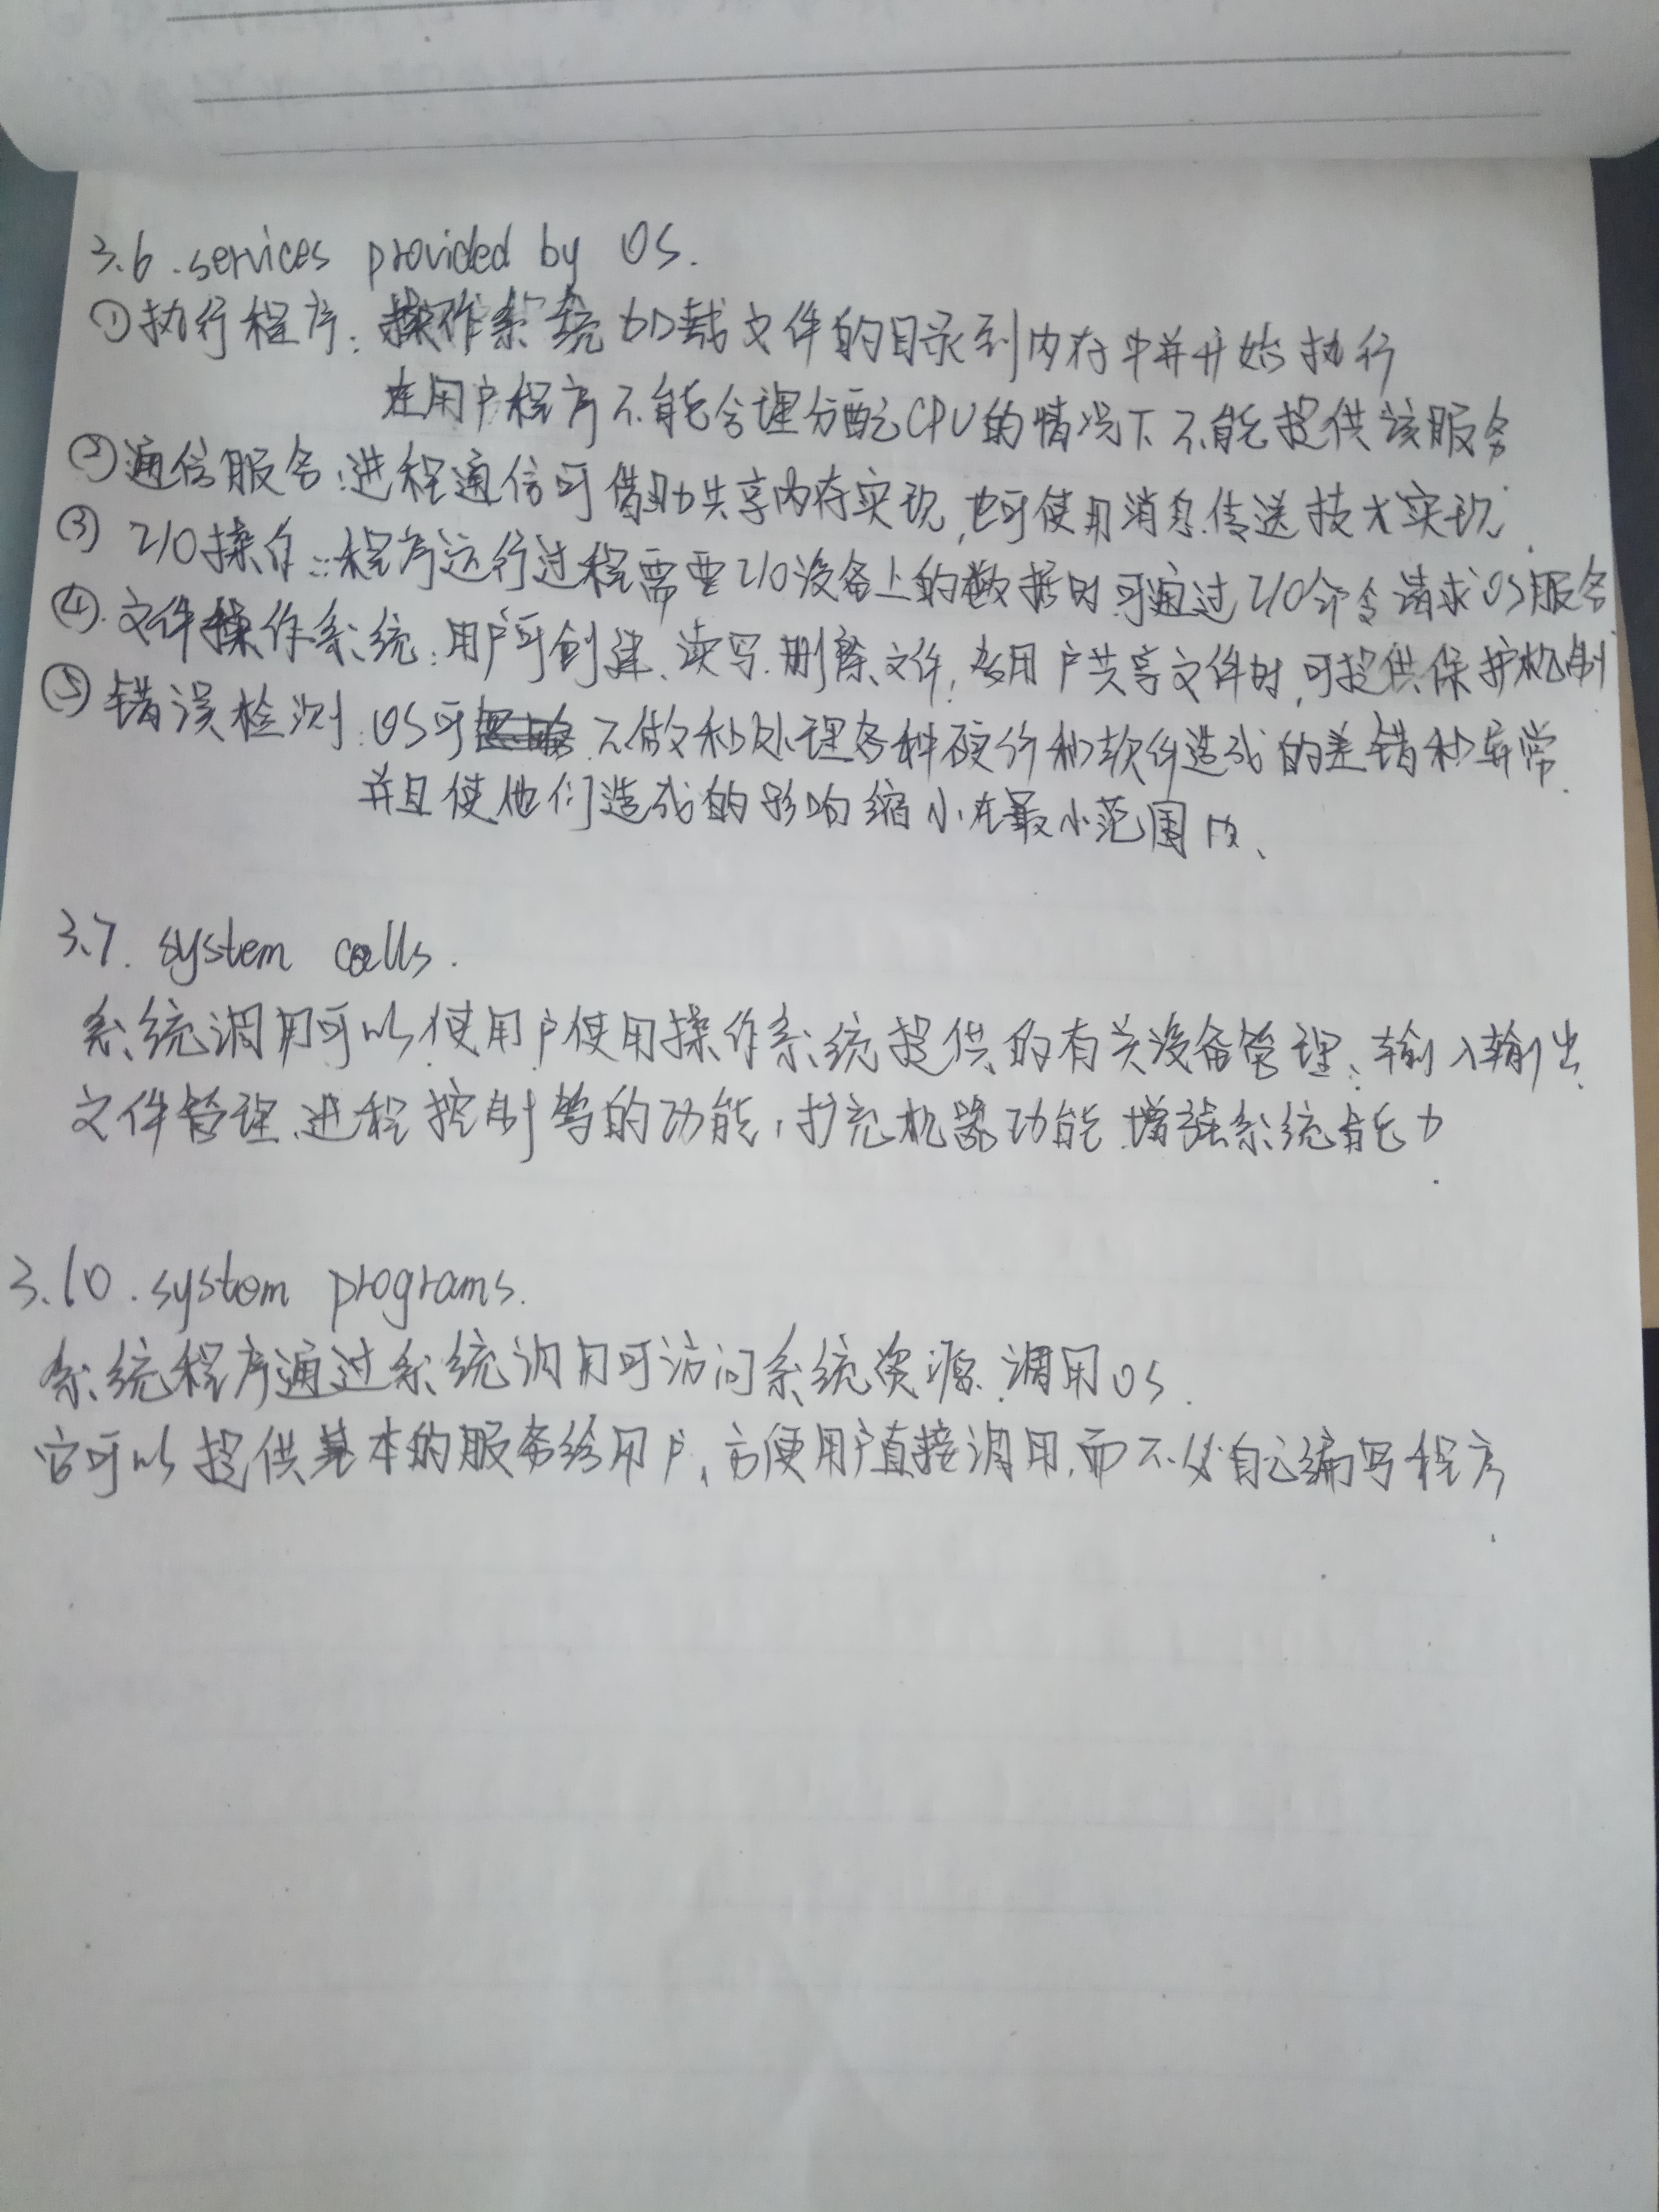 3.6. services provided by OS.
①执行程序：操作系统加载文件的目录到内存中并开始执行
在用户程序不能合理分配CPU的情况下不能提供该服务
②通信服务：进程通信可借助共享内存实现，也可使用消息传送技术实现.
③ I/O操作：程序运行过程需要I/O设备上的数据时可通过I/O命令请求OS服务
④.文件操作系统：用户可创建、读写.删除文件，多用户共享文件时，可提供保护机制
⑤错误检测：OS可 和处理各种硬件和软件造成的差错和异常.
并且使他们造成的影响缩小在最小范围内、
3.7. system calls.
系统调用可以使用户使用操作系统提供的有关设备管理、输入输出
文件管理、进程控制等的功能，扩充机器功能.增强系统能力.
3.10. system programs.
系统程序通过系统调用可访问系统资源.调用OS.
它可以提供基本的服务给用户，方便用户直接调用，而不必自己编写程序.